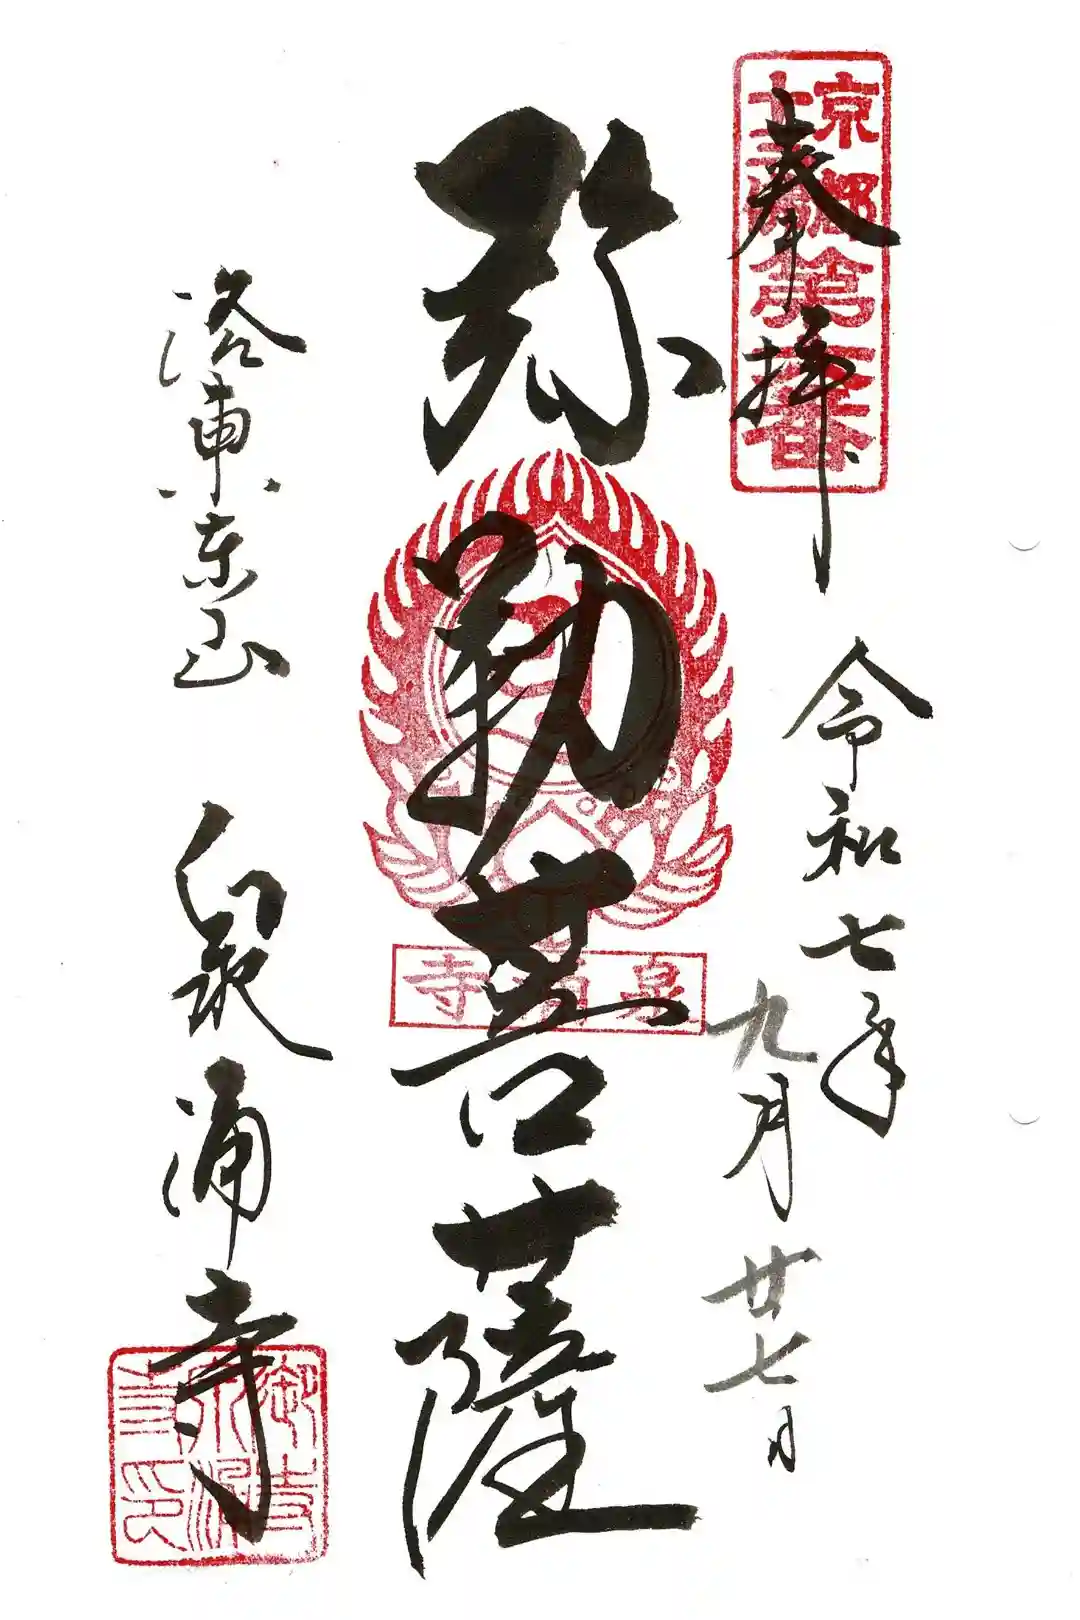 京都
十三佛
第六番
奉拝
令和七年
九月廿七日
弥勒菩薩
泉涌寺
洛東东山 泉涌寺
御寺
泉涌
寺印